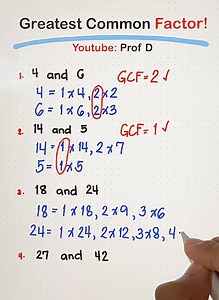 Greatest Common Factor!
Youtube: Prof D
1. 4 and 6 GCF=2 ✓
4 = 1×4, 2×2
6 = 1×6, 2×3
2. 14 and 5 GCF=1 ✓
14 = 1×14, 2×7
5 = 1×5
3. 18 and 24
18 = 1×18, 2×9, 3×6
24 = 1×24, 2×12, 3×8, 4
4. 27 and 42